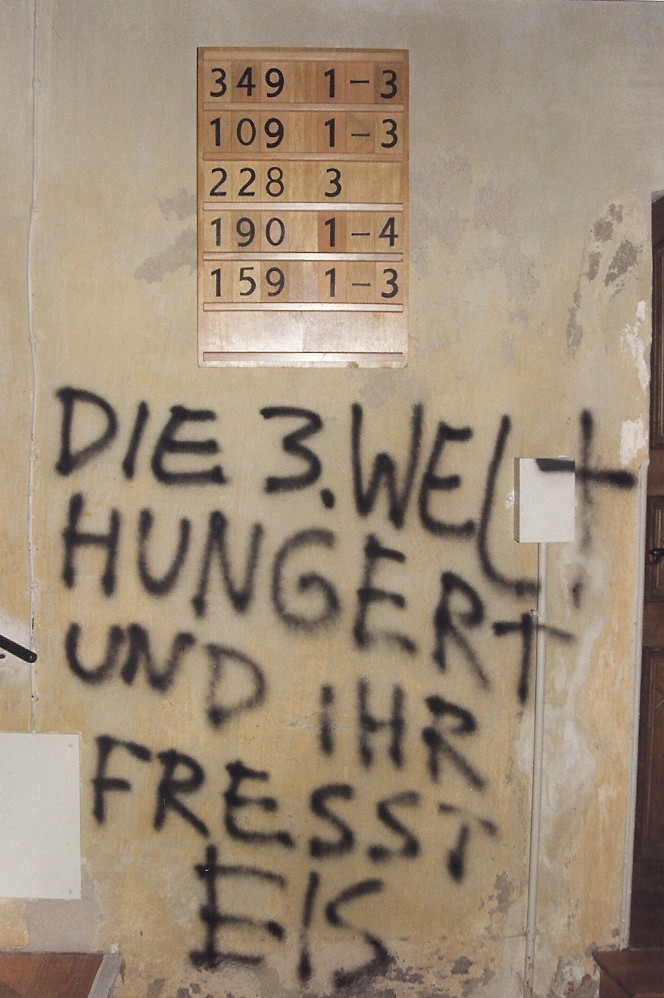 349 1-3
109 1-3
228 3
190 1-4
159 1-3
DIE 3. WELT
HUNGERT
UND IHR
FRESST
EIS